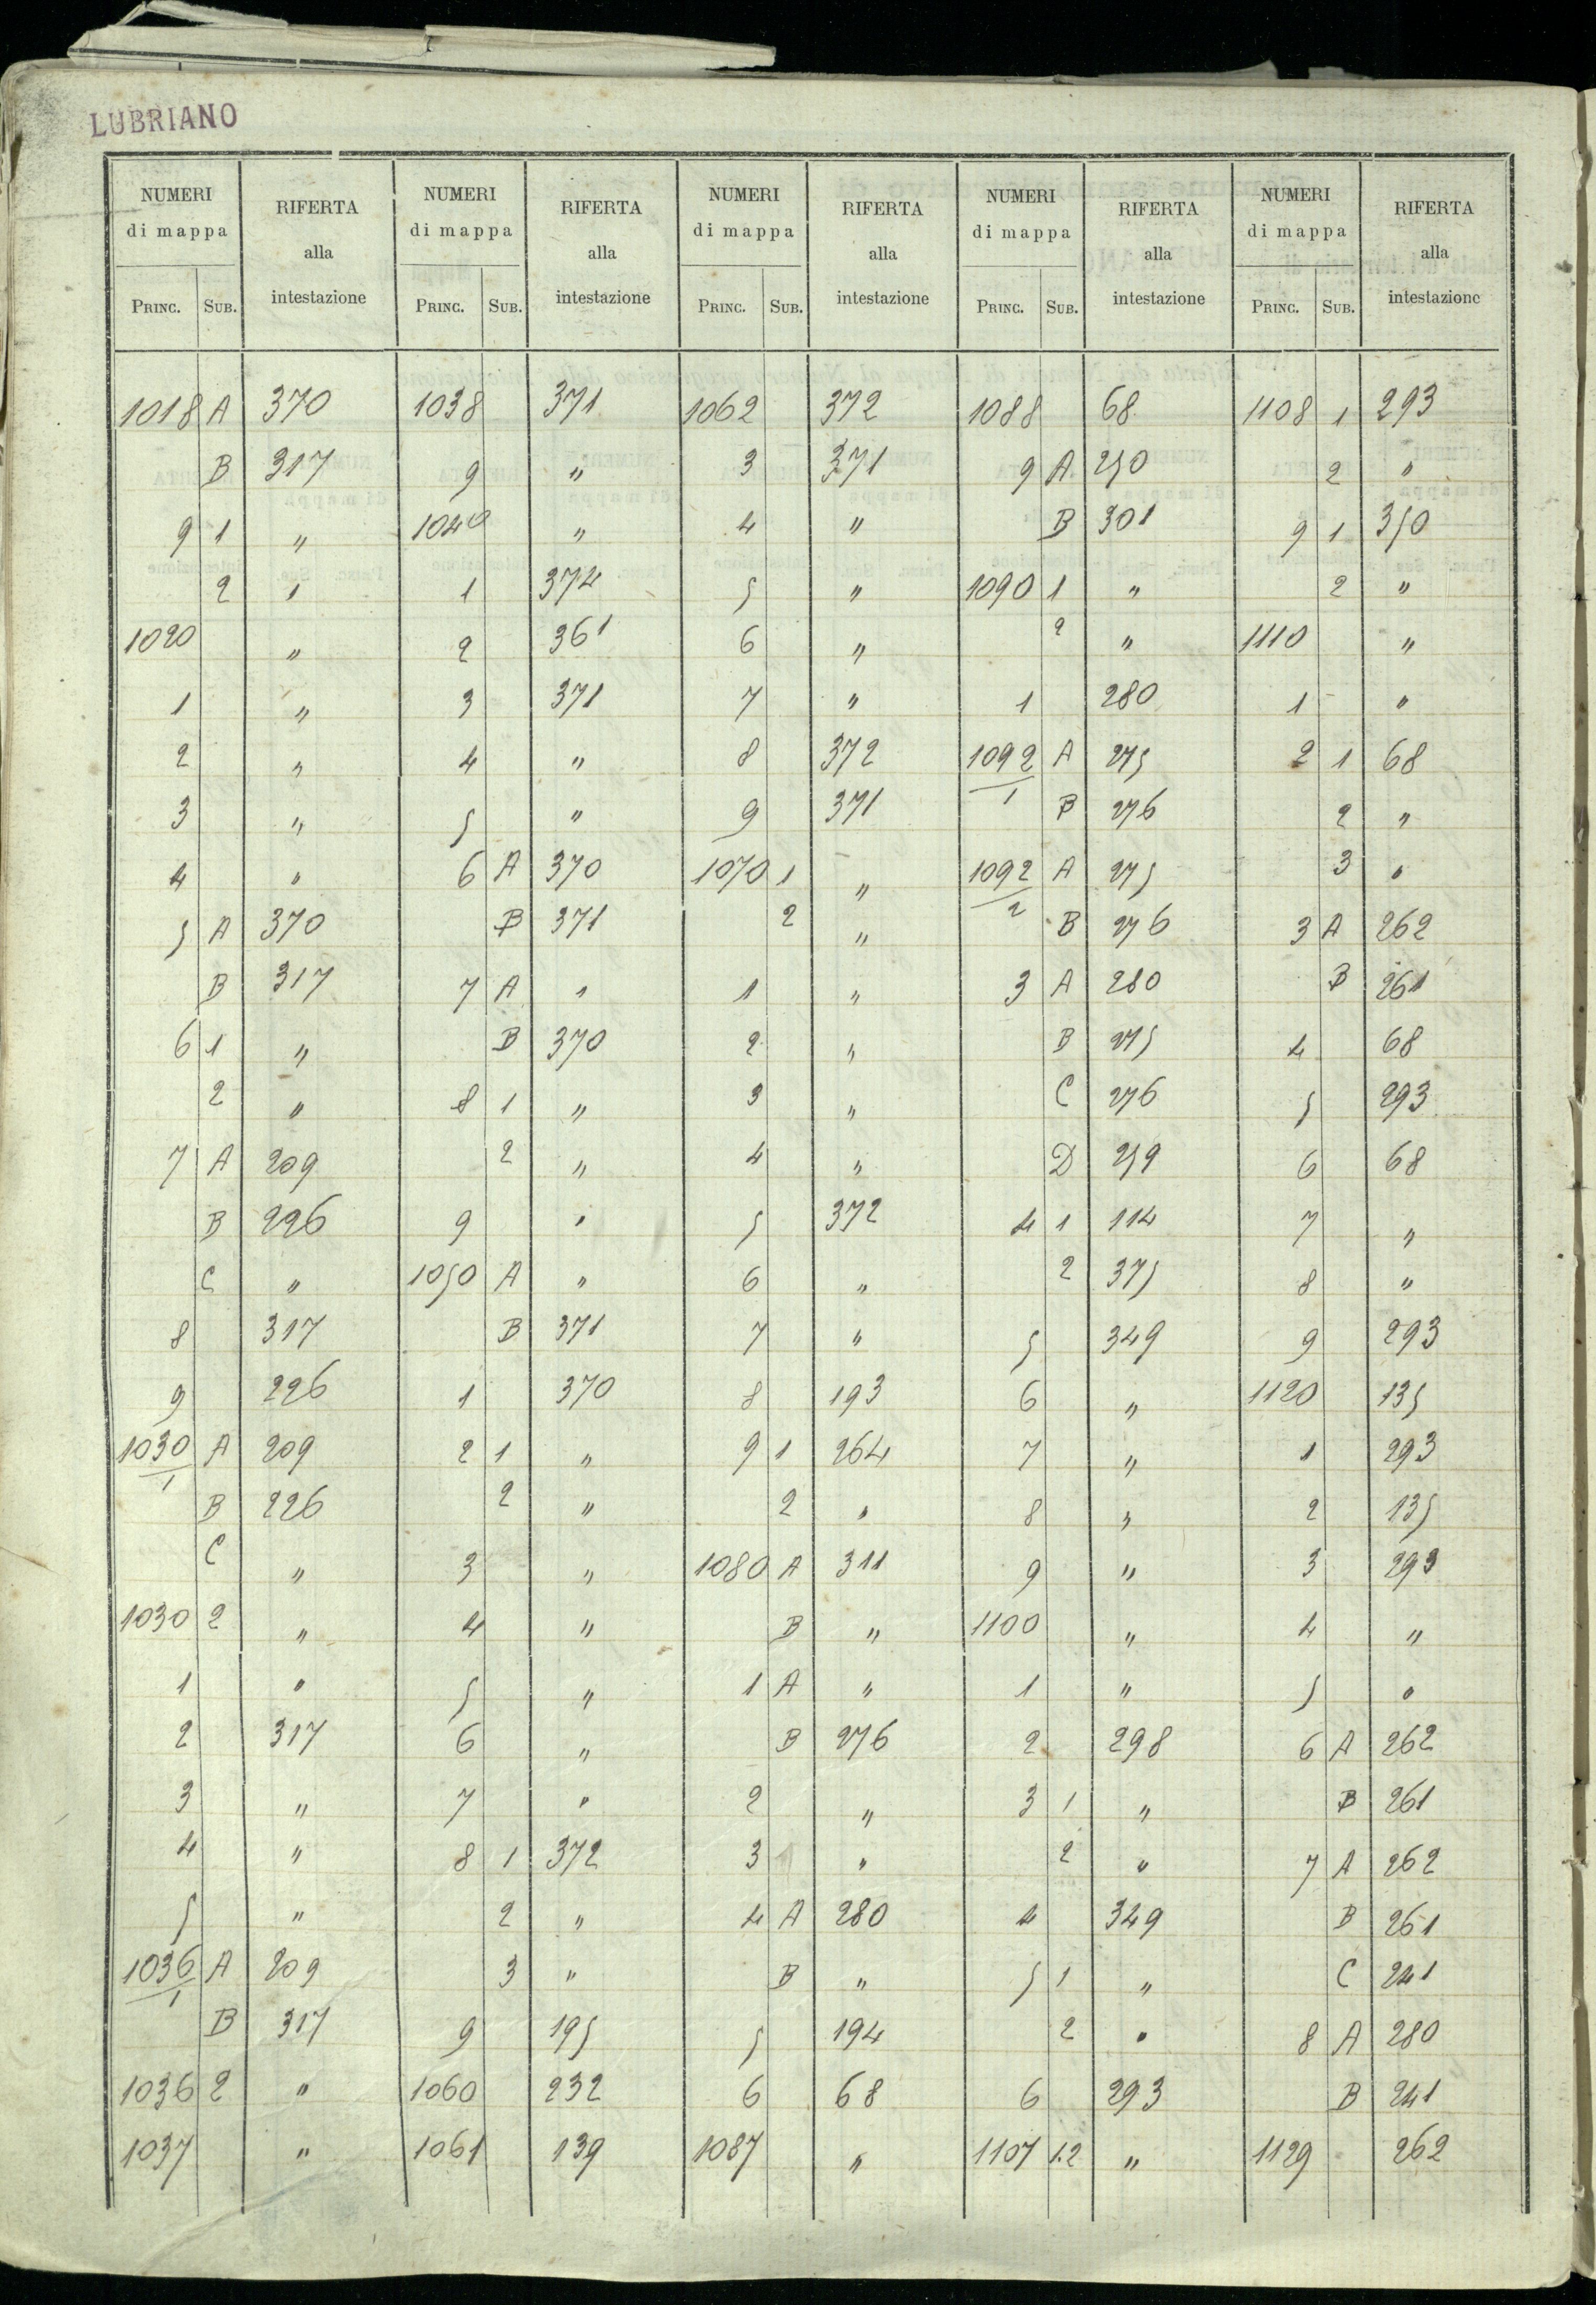 LUBRIANO
NUMERI di mappa RIFERTA alla intestazione NUMERI di mappa RIFERTA alla intestazione NUMERI di mappa RIFERTA alla intestazione NUMERI di mappa RIFERTA alla intestazione NUMERI di mappa RIFERTA alla intestazione
PRINC. SUB. PRINC. SUB. PRINC. SUB. PRINC. SUB. PRINC. SUB.
1018 A 370 1038 371 1062 372 1088 68 1108 1 293
B 317 9 " 3 371 9 A 250 2 "
9 1 " 1040 " 4 " B 301 9 1 350
2 " 1 374 5 " 1090 1 " 2 "
1020 " 2 361 6 " 2 " 1110 "
1 " 3 371 7 " 1 280 1 "
2 " 4 " 8 372 1092/1 A 275 2 1 68
3 " 5 " 9 371 B 276 2 "
4 " 6 A 370 1070 1 " 1092/2 A 275 3 "
5 A 370 B 371 2 " B 276 3 A 262
B 317 7 A " 1 " 3 A 280 B 261
6 1 " B 370 2 " B 275 4 68
2 " 8 1 " 3 " C 276 5 293
7 A 209 2 " 4 " D 259 6 68
B 226 9 " 5 372 4 1 114 7 "
C " 1050 A " 6 " 2 375 8 "
8 317 B 371 7 " 5 349 9 293
9 226 1 370 8 193 6 " 1120 135
1030/1 A 209 2 1 " 9 1 264 7 " 1 293
B 226 2 " 2 " 8 " 2 135
C " 3 " 1080 A 311 9 " 3 293
1030 2 " 4 " B " 1100 " 4 "
1 " 5 " 1 A " 1 " 5 "
2 317 6 " B 276 2 298 6 A 262
3 " 7 " 2 " 3 1 " B 261
4 " 8 1 372 3 " 2 " 7 A 262
5 " 2 " 4 A 280 4 349 B 261
1036/1 A 209 3 " B " 5 1 " C 241
B 317 9 195 5 194 2 " 8 A 280
1036 2 " 1060 232 6 68 6 293 B 241
1037 " 1061 139 1087 " 1107 1.2 " 1129 262